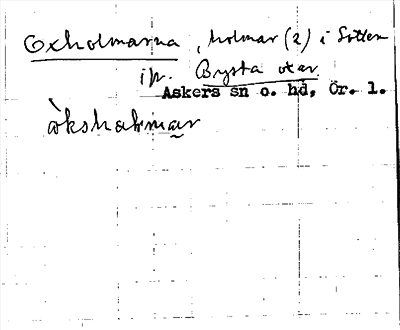 Oxholmarna, holmar (2) i Sottern
i p. Bysta ägor
Askers sn o. hd, Ör. l.
òkshahmar